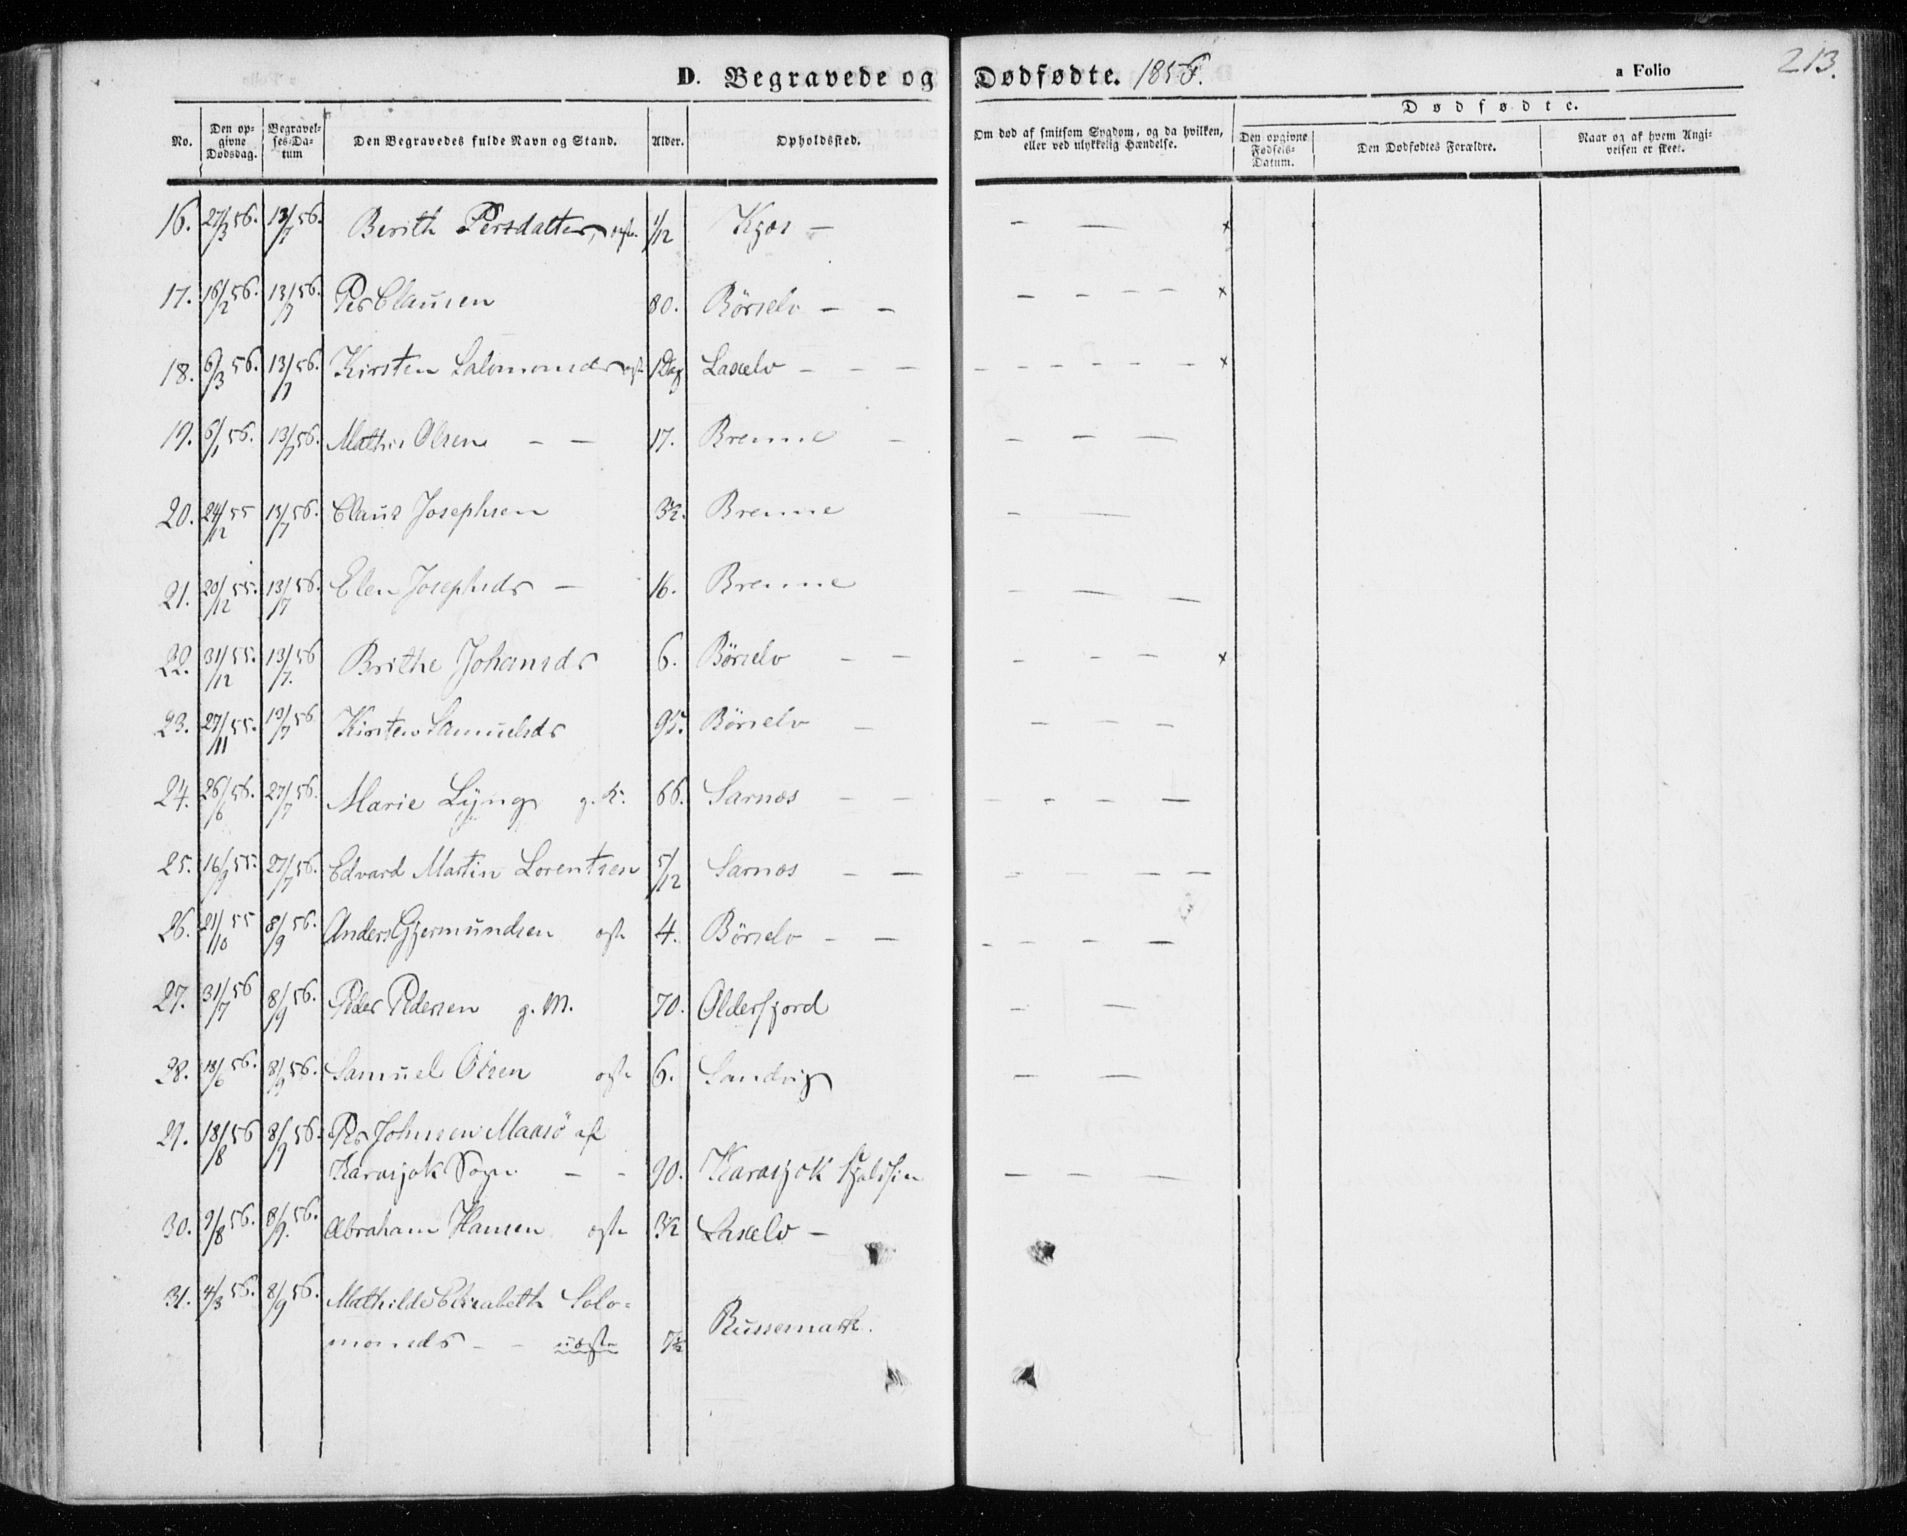 D. Begravede og Dødfødte. 1856. a Folio 213.
No. Den opgivne Dødsdag. Begravelses-Datum Den Begravedes fulde Navn og Stand. Alder. Opholdssted. Om død af smitsom Sygdom, og da hvilken, eller ved ulykkelig Hændelse. Dødfødte. Den opgivne Fødsels-Datum. Den Dødfødtes Forældre. Naar og af hvem Angivelsen er skeet.
16. 27/3 56. 13/7 56. Berith Persdatter, ægte. 1/12 — - — x
17. 16/2 56. 13/7 56. Per Clausen 80. Börselv — — — - — — x
18. 6/3 56. 13/7 56. Kirsten Salomonsdr ægte 1 Dag Laxelv — — — - — — — — — x
19. 6/1 56. 13/7 56. Mathis Olsen — — 17. Brenne — — — —
20. 24/12 55 13/7 56. Claus Josephsen 3½. Brenne - —
21. 20/12 55. 13/7 56. Elen Josephsdr — 16. Brenne - — —
22. 31/12 55. 13/7. 56 Brithe Johansdr 6. Börselv — — - — — x
23. 27/11 55. 13/7 56 Kirsten Samuelsdr 95. Börselv — — — —
24. 26/6 56. 27/7 56. Marie Lyng g. K. 66. Sarnæs — — — - — —
25. 16/9 55. 27/7 56. Edvard Martin Lorentsen 5/12 Sarnæs — — — — — —
26. 21/10 55 8/9 56. Anders Gjermundsen ægte 4. Börselv — — - — — —
27. 31/7 56 8/9 56. Peder Pedersen g. M. 70. Olderfjord - —
28. 18/6 56. 8/9 56. Samuel Olsen ægte 6. Sandvig — —
29. 18/8 56 8/9 56. Per Johnsen Maasö af
Karasjok Sogn — - 90. Karasjok — — —
30. 9/8 56. 8/9. 56. Abraham Hansen ægte 3½ Laxelv —
31. 4/3 56. 8/9 56. Mathilde Elisabeth Solo-
monsdr — - uægte 7½ Russemark.